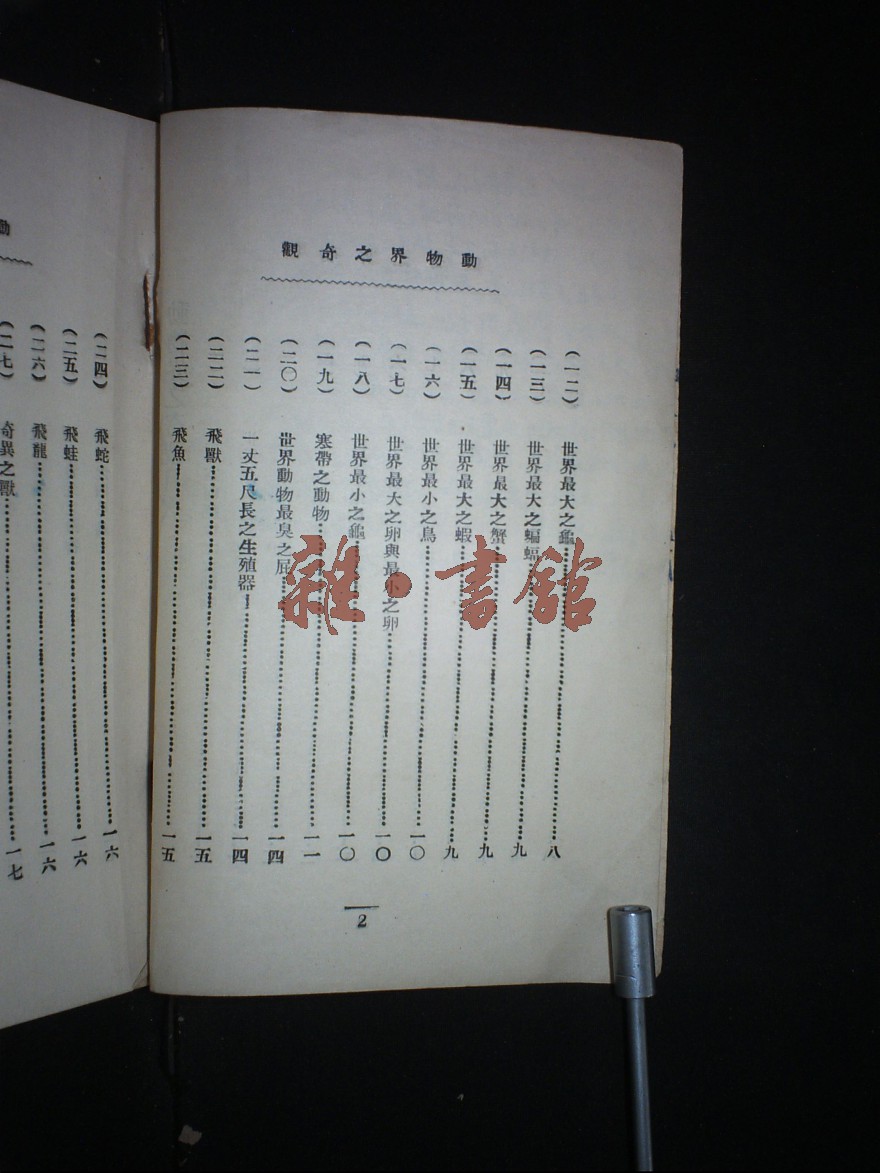 動物界之奇觀
(一二) 世界最大之龜 八
(一三) 世界最大之蝙蝠 九
(一四) 世界最大之蟹 九
(一五) 世界最大之蝦 九
(一六) 世界最小之鳥 一〇
(一七) 世界最大之卵與最小之卵 一〇
(一八) 世界最小之龜 一〇
(一九) 寒帶之動物 一一
(二〇) 世界動物最臭之屁 一四
(二一) 一丈五尺長之生殖器 一四
(二二) 飛獸 一五
(二三) 飛魚 一五
2
動
(二四) 飛蛇 一六
(二五) 飛蛙 一六
(二六) 飛龍 一六
(二七) 奇異之獸 一七
雜·書館